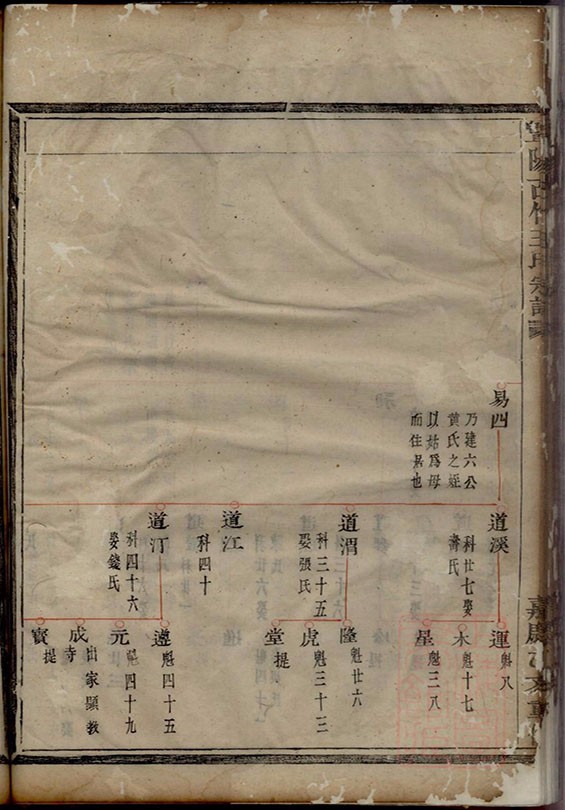 易四
乃建六公
黄氏之姪
以姑爲母
而住居也
道溪
科廿七娶
氏
道渭
科三十五
娶張氏
道江
科四十
道汀
科四十六
娶錢氏
運
魁八
木
魁十七
星
魁三八
隆
魁廿六
虎
魁三十三
堂
提
遵
魁四十五
元
魁四十九
成
出家顯教
寺
寳
提